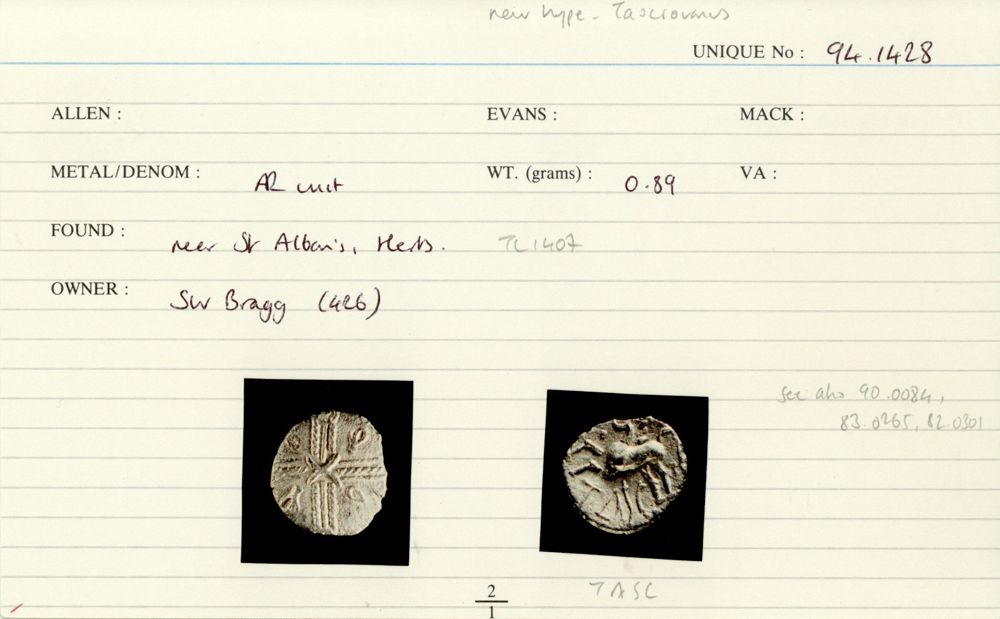 new type - Tasciovanus
UNIQUE No : 94.1428
ALLEN : EVANS : MACK :
METAL/DENOM : AR unit WT. (grams) : 0.89 VA :
FOUND : near St Albans, Herts. TL1407
OWNER : SW Bragg (426)
see also 90.0084,
83.0265, 82.0301
TASC
2
1